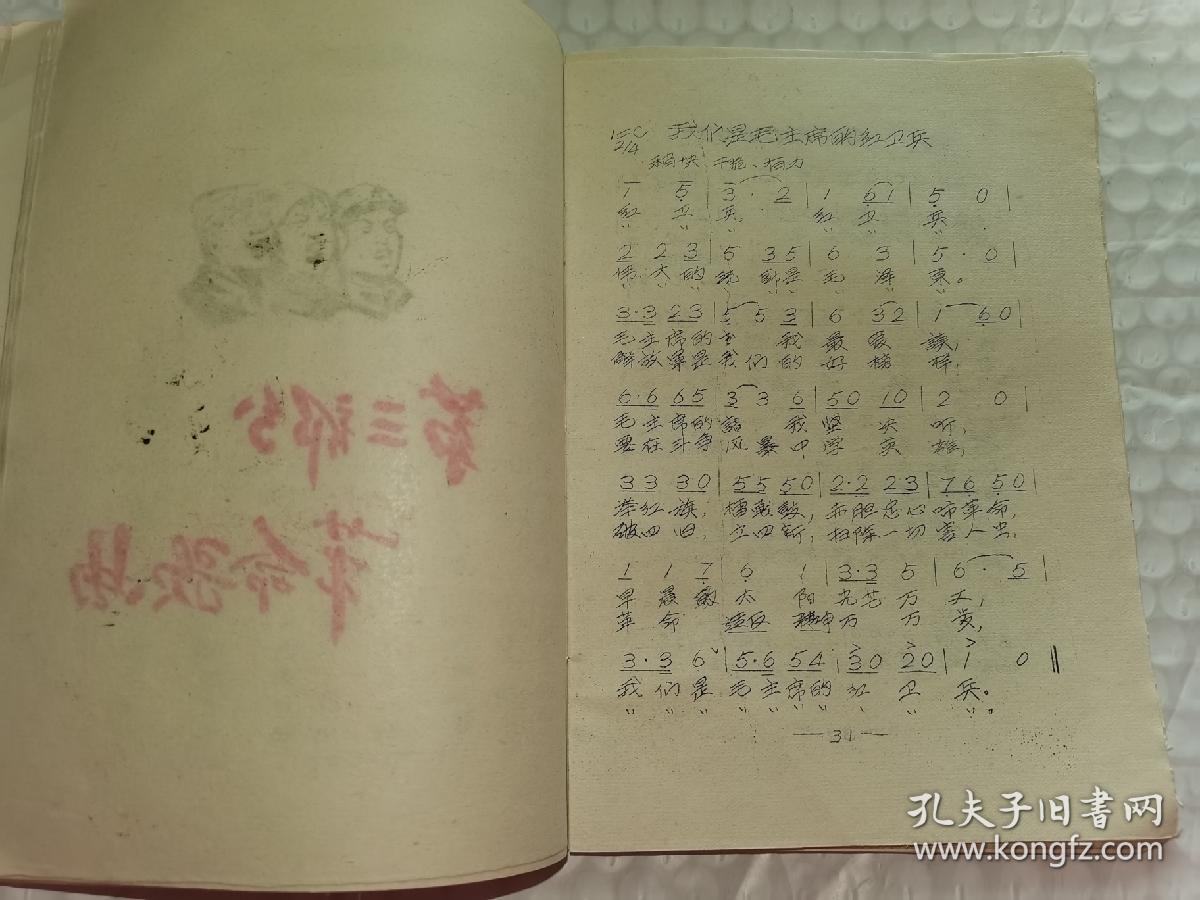 第三部分
革命歌曲
1=C 2/4
我们是毛主席的红卫兵
稍快 干脆、有力
1 5 | 3 · 2 | 1 61 | 5 0 |
红 卫 兵。 红 卫 兵
2 2 3 | 5 35 | 6 3 | 5 · 0 |
伟 大 的 统 帅是 毛 泽 东。
3·3 23 | 5 5 3 | 6 32 | 1 60 |
毛主席的书 我 最 爱 读,
解放军是我们的 好 榜 样,
6·6 65 | 3 3 6 | 50 10 | 2 0 |
毛主席的話 我 坚 决 听,
要在斗争风暴中 学 英 雄,
33 30 | 55 50 | 2·2 23 | 76 50 |
举红旗, 擂战鼓, 赤胆忠心 革命,
破四旧, 立四新, 扫除一切害人虫,
1 1 7 | 6 1 | 3·3 5 | 6 · 5 |
早 晨 的 太 阳 光芒 万 丈,
革 命 造反 精神万 万 岁,
3·3 6 | 5·6 54 | 30 20 | 1 0 ‖
我 们 是 毛 主 席 的 红 卫 兵。
—31—
孔夫子旧書网
www.kongfz.com